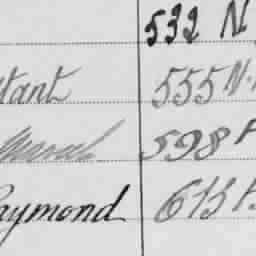 532 N
tant 555 N.
598 F
aymond 615 F.